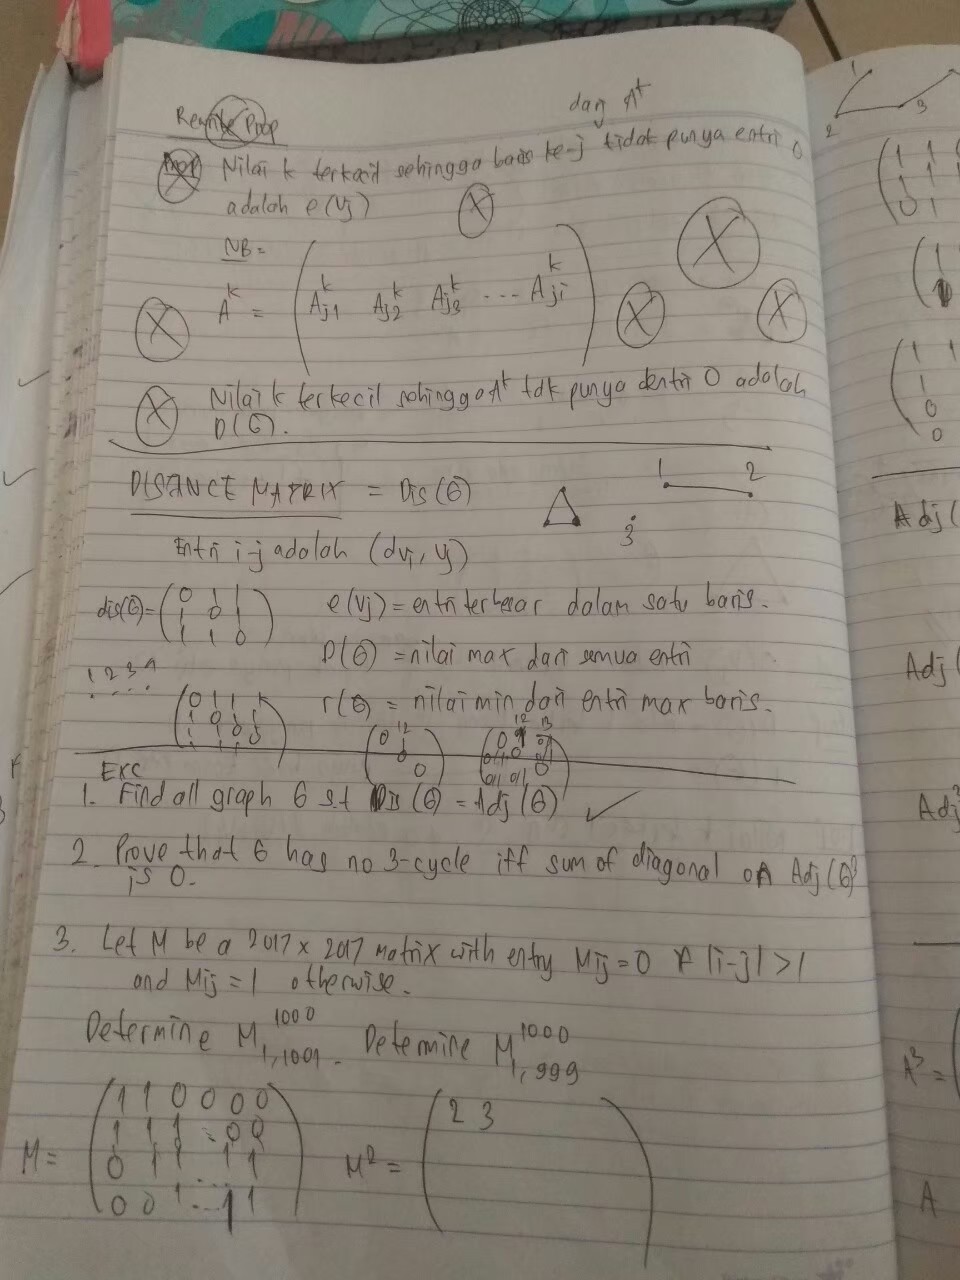 dan A^k
Rewrite Prop
Prop Nilai k terkecil sehingga baris ke-j tidak punya entri 0
adalah e(vj)
NB =
A^k = ( A^k_j1 A^k_j2 A^k_j3 ... A^k_ji )
Nilai k terkecil sehingga A^k tdk punya entri 0 adalah
D(G).
DISTANCE MATRIX = Dis(G)
1 2
3
Entri i-j adalah (dvi, vj)
dis(G) = ( 0 1 1
1 0 1
1 1 0 )
e(vj) = entri terbesar dalam satu baris.
D(G) = nilai max dari semua entri
r(G) = nilai min dari entri max baris.
1 2 3 4
EXC
1. Find all graph G s.t Dis(G) = Adj(G) ✓
2. Prove that G has no 3-cycle iff sum of diagonal on Adj(G)^3
is 0.
3. Let M be a 2017 x 2017 matrix with entry Mij = 0 if |i-j| > 1
and Mij = 1 otherwise.
Determine M^1000_1,1001. Determine M^1000_1,999
M = ( 1 1 0 0 0 0
1 1 1 ... 0 0
0 1 1 ... 1 1
0 0 1 ... 1 1 )
M^2 = ( 2 3 )
1
2 3
Adj (
Adj (
Adj
A^3 =
A